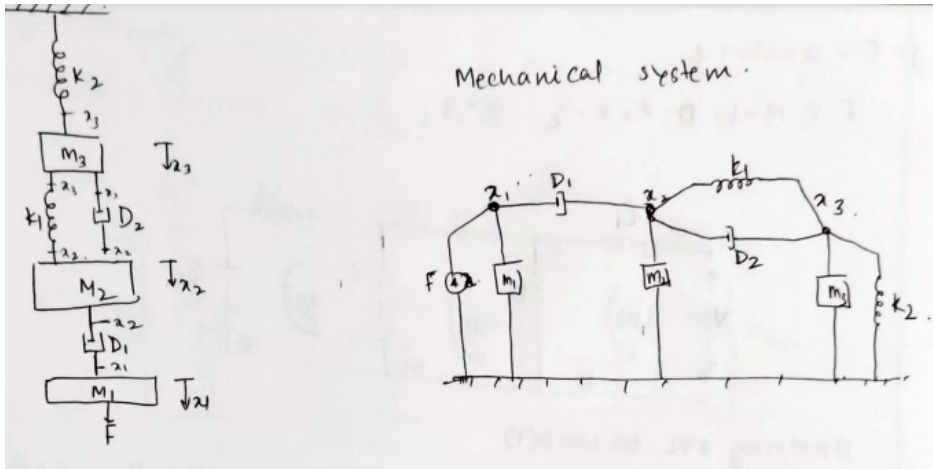 K2
x3
M3
x3
x3
K1
D2
x2
x2
M2
x2
x2
D1
x1
M1
x1
F
Mechanical system.
x1
D1
x2
K1
x3
D2
F
m1
m2
m3
K2